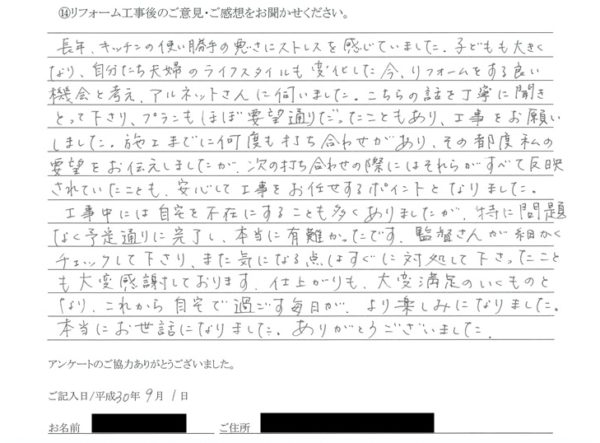 ⑭リフォーム工事後のご意見・ご感想をお聞かせください。
長年、キッチンの使い勝手の悪さにストレスを感じていました。子どもも大きく
なり、自分たち夫婦のライフスタイルも変化した今、リフォームをする良い
機会と考え、アルネットさんに伺いました。こちらの話を丁寧に聞き
とって下さり、プランもほぼ要望通りだったこともあり、工事をお願い
しました。施工までに何度も打ち合わせがあり、その都度私の
要望をお伝えしましたが、次の打ち合わせの際にはそれらがすべて反映
されていたことも、安心して工事をお任せするポイントとなりました。
工事中には自宅を不在にすることも多くありましたが、特に問題
なく予定通りに完了し、本当に有難かったです。監督さんが細かく
チェックして下さり、また気になる点はすぐに対処して下さったこと
も大変感謝しております。仕上がりも、大変満足のいくものと
なり、これから自宅で過ごす毎日が、より楽しみになりました。
本当にお世話になりました。ありがとうございました。
アンケートのご協力ありがとうございました。
ご記入日/平成30年9月1日
お名前 ご住所